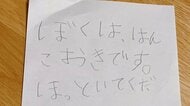 ぼくは、はん
こおきです。
ほっといてくだ